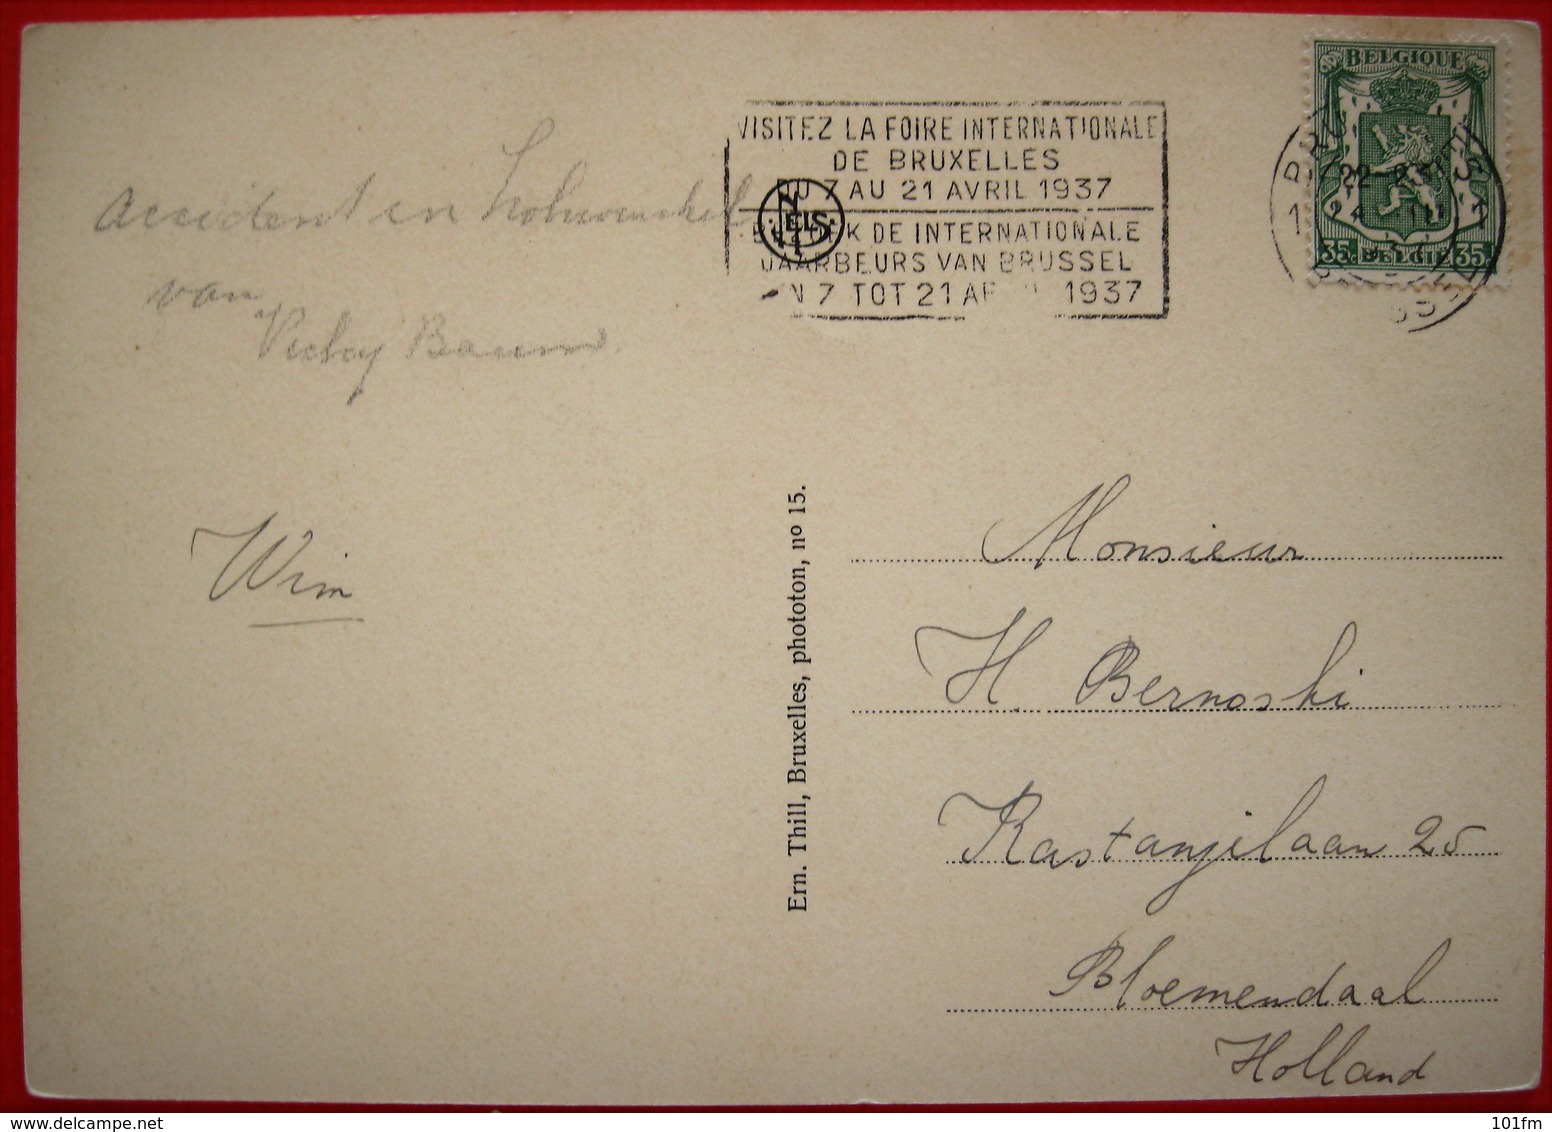 accident in Lohwinkel
van
Vicky Baum.
Wim
VISITEZ LA FOIRE INTERNATIONALE
DE BRUXELLES
DU 7 AU 21 AVRIL 1937
DE INTERNATIONALE
JAARBEURS VAN BRUSSEL
7 TOT 21 1937
NELS
BELGIQUE
35 BELGIË 35
Ern. Thill, Bruxelles, phototon, nº 15.
Monsieur
H. Bernoski
Kastanjelaan 25
Bloemendaal
Holland
101fm